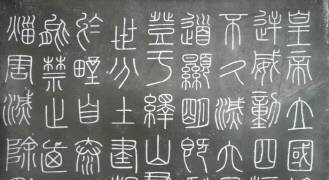 皇帝立國
逆威動四
不久滅六
道顯明既
登于繹山
世分土建
於野自泰
能禁止廼
烖害滅除